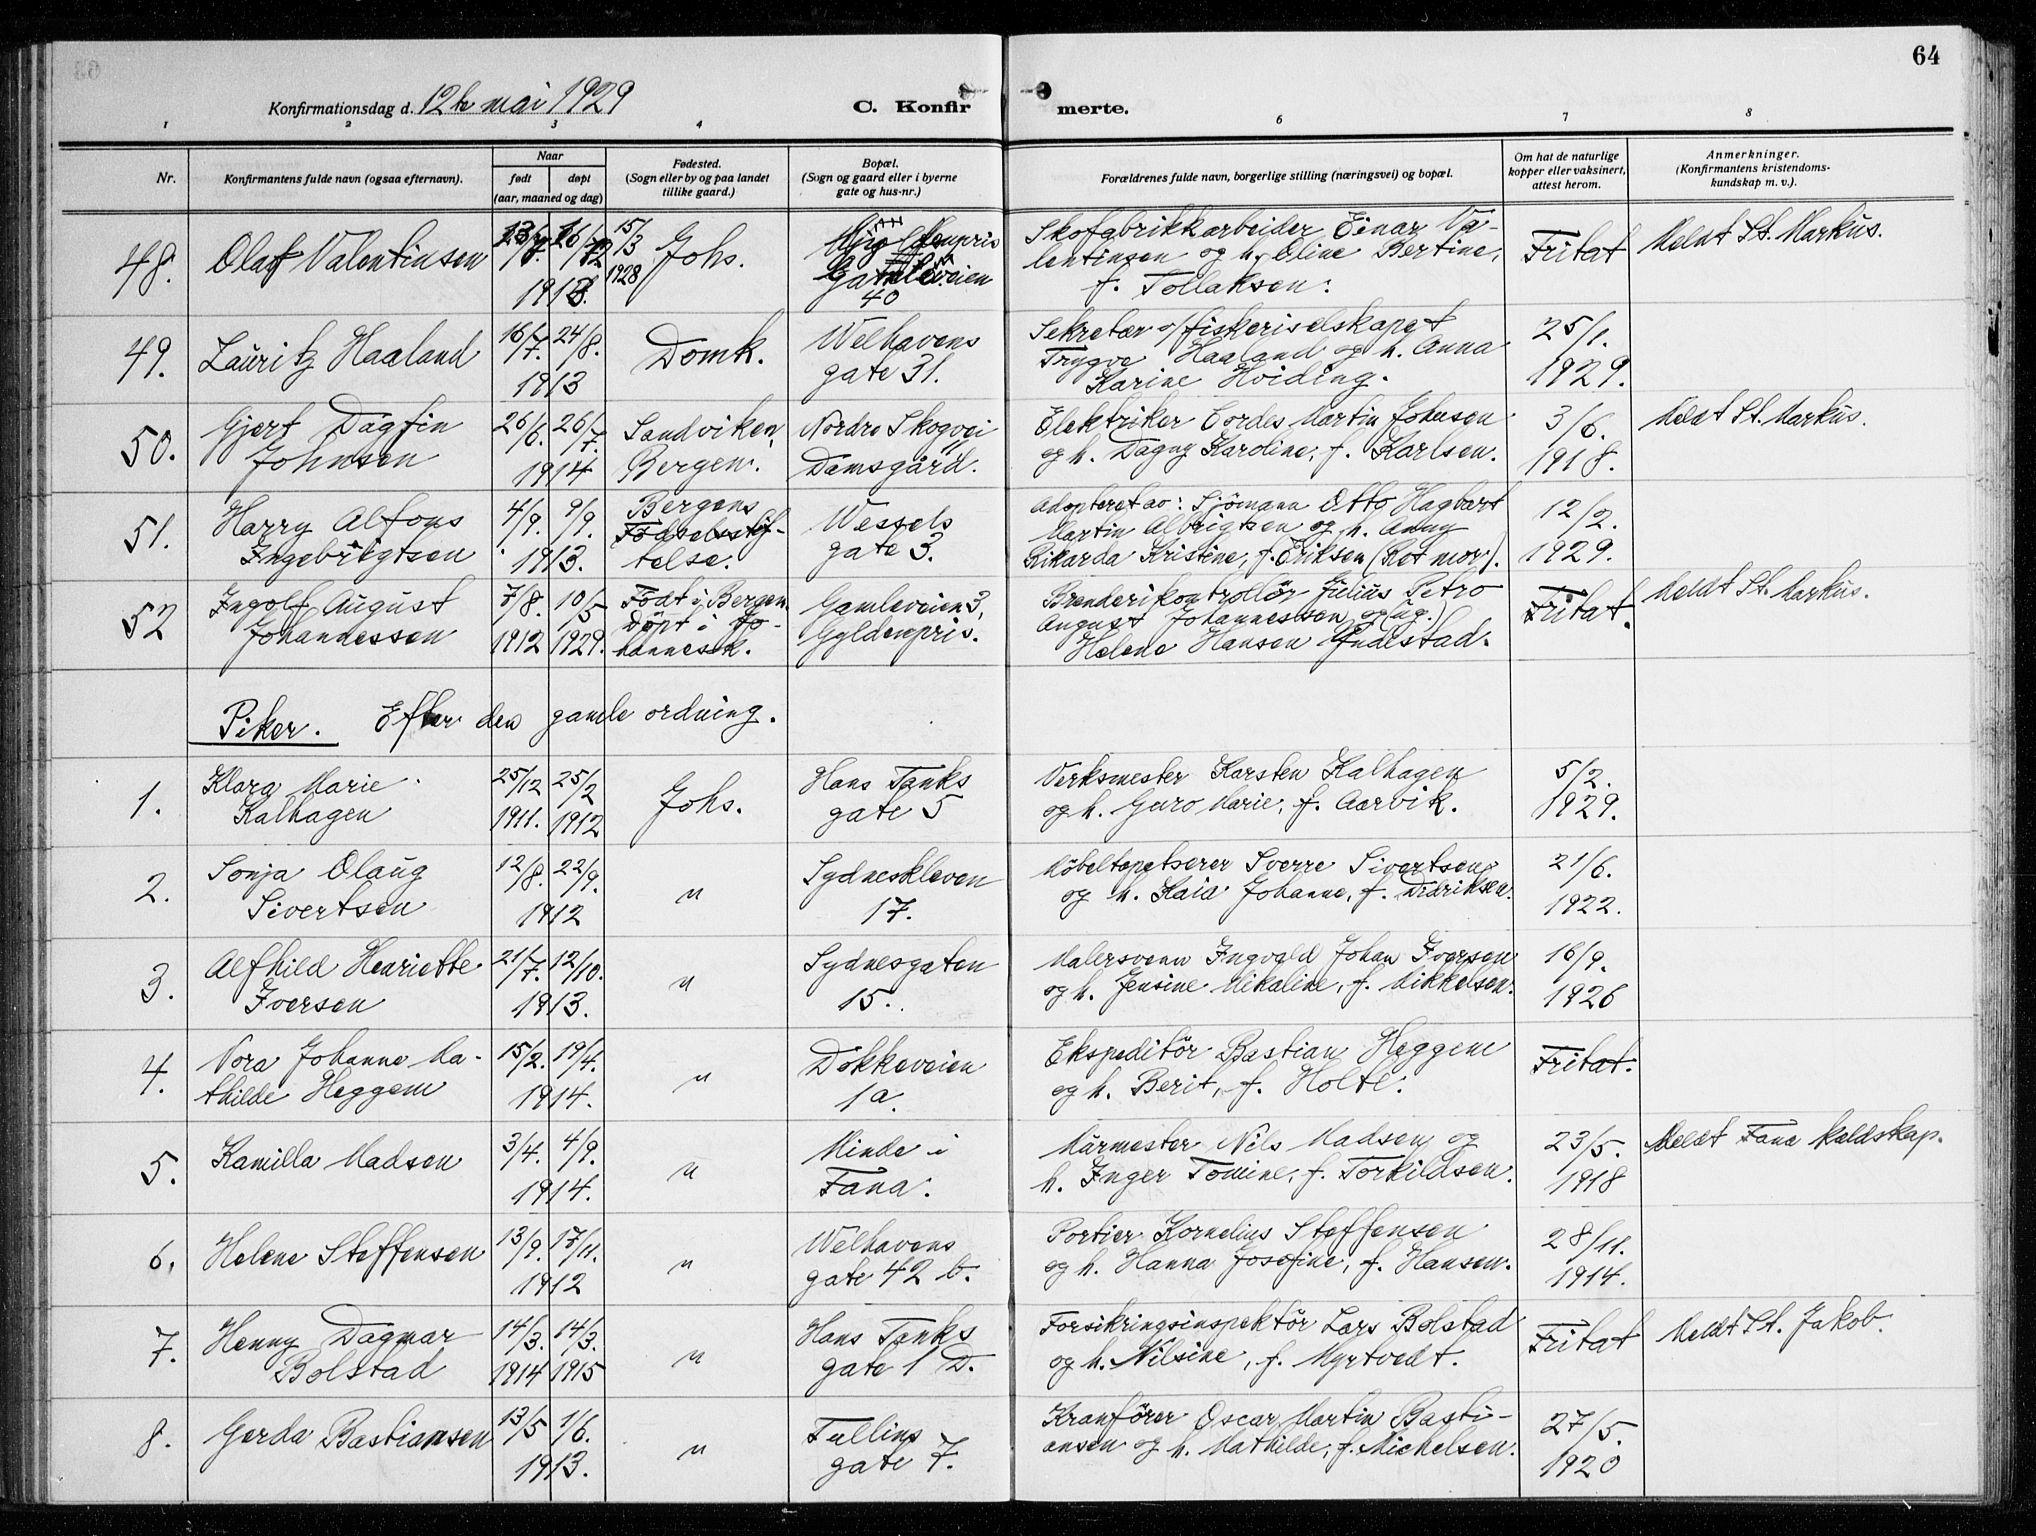 64
Konfirmationsdag d. 12te mai 1929
C. Konfir merte.
1 2 3 4 6 7 8
Nr.
Konfirmantens fulde navn (ogsaa efternavn).
Naar
født
døpt
(aar, maaned og dag)
Fødested.
(Sogn eller by og paa landet
tillike gaard.)
Bopæl.
(Sogn og gaard eller i byerne
gate og hus-nr.)
Forældrenes fulde navn, borgerlige stilling (næringsvei) og bopæl.
Om hat de naturlige
kopper eller vaksinert,
attest herom.
Anmerkninger.
(Konfirmantens kristendoms-
kundskap m. v.).
48. Olaf Valentinsen
15/3
1928
Johs.
40
Skofabrikkarbeider Einar Va-
lentinsen og h. Oline Bertine,
f. Tollaksen.
Fritat
Meldt St. Markus.
49. Lauritz Haaland
16/7. 24/8.
1913
Domk.
Welhavens
gate 31.
Sekretær v/fiskeriselskapet
Trygve Haaland og h. Anna
Karine Hviding.
25/1.
1929.
50. Gjert Dagfin
Johnsen
26/6. 26/7.
1914
Sandviken,
Bergen.
Nordre Skogvei
Damsgård.
Elektriker Cordes Martin Johnsen
og h. Dagny Karoline, f. Karlsen.
3/6.
1918.
Meldt St. Markus.
51. Harry Alfons
Ingebrigtsen
4/9. 9/9.
1913.
Bergens
Fødselsstif-
telse.
Wessels
gate 3.
Adopteret av: Sjømann Otto Hagbart
Martin Albrigtsen og h. Anny
Rikarda Kristine, f. Eriksen (Ret mor).
12/2.
1929.
52 Ingolf August
Johannessen
7/8. 10/5
1912 1929.
Født i Bergen.
Døpt i Jo-
hannesk.
Gamleveien 3,
Gyldenpris.
Brenderikontrollør Julius Petro
August Johannessen og (ug.)
Helene Hansen Endestad.
Fritat.
Meldt St. Markus.
Piker. Efter den gamle ordning.
1. Klara Marie
Kalhagen
25/12 25/2
1911. 1912
Johs.
Hans Tanks
gate 5
Verksmester Karsten Kalhagen
og h. Guro Marie, f. Aarvik.
5/2.
1929.
2. Sonja Olaug
Sivertsen
12/8. 22/9.
1912
"
Sydneskleven
17.
Møbeltapetserer Sverre Sivertsen
og h. Kaia Johanne, f. Didriksen.
21/6.
1922.
3. Alfhild Henriette
Iversen
21/7. 12/10.
1913.
"
Sydnesgaten
15.
Malersvenn Ingvald Johan Iversen
og h. Jensine Mikaline, f. Mikkelsen.
16/9.
1926
4. Nora Johanne Ma-
thilde Heggem
15/2. 19/4.
1914.
"
Dokkeveien
1a.
Ekspeditør Bastian Heggem
og h. Berit, f. Holte.
Fritat.
5. Kamilla Madsen
3/4. 4/9.
1914.
"
Minde i
Fana.
Murmester Nils Madsen og
h. Inger Tomine, f. Torkildsen.
23/5.
1918
Meldt Fana kaldskap.
6. Helene Steffensen
13/9. 17/11.
1912
"
Welhavens
gate 42 b.
Portier Kornelius Steffensen
og h. Hanna Josefine, f. Hansen.
28/11.
1914.
7. Henny Dagmar
Bolstad
14/3. 14/3.
1914 1915
"
Hans Tanks
gate 1 D.
Forsikringsinspektør Lars Bolstad
og h. Nilsine, f. Myrtvedt.
Fritat
Meldt St. Jakob.
8. Gerda Bastiansen
13/5 1/6.
1913.
"
Tullins
gate 7.
Kranfører Oscar Martin Basti-
ansen og h. Mathilde, f. Michelsen.
27/5.
1920